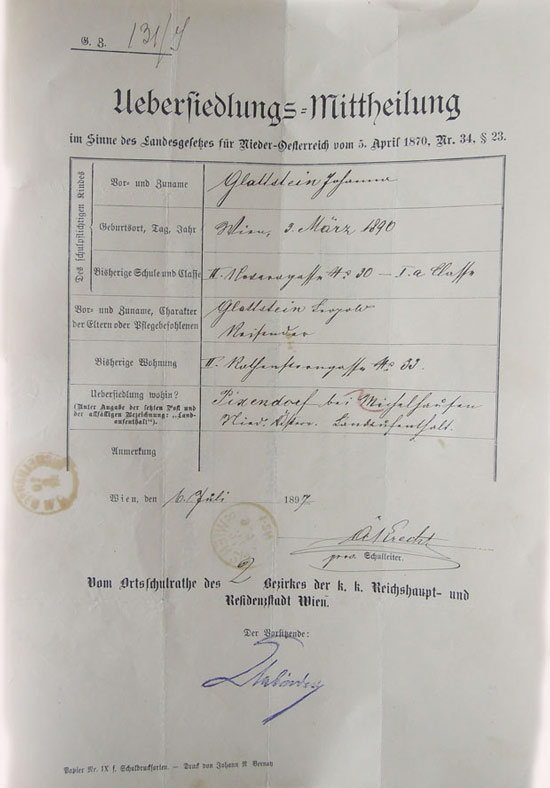 G. Z. 131/J
Uebersiedlungs-Mittheilung
im Sinne des Landesgesetzes für Nieder-Oesterreich vom 5. April 1870, Nr. 34, § 23.
Des schulpflichtigen Kindes
Vor- und Zuname
Glattstein Johanna
Geburtsort, Tag, Jahr
Wien, 3. März 1890
Bisherige Schule und Classe
II. No 30 – I. a Classe
Vor- und Zuname, Charakter
der Eltern oder Pflegebefohlenen
Glattstein Leopold
Reisender
Bisherige Wohnung
II. Rothensterngasse No 33.
Uebersiedlung wohin?
(Unter Angabe der letzten Post und
der allfälligen Bezeichnung: „Land-
aufenthalt").
Pixendorf bei Michelhausen
Nied. Österr. Landaufenthalt.
Anmerkung
Wien, den 6. Juli 1897.
prov. Schulleiter.
Vom Ortsschulrathe des 2 Bezirkes der k. k. Reichshaupt- und
Residenzstadt Wien.
Der Vorsitzende:
Papier Nr. IX f. Schuldrucksorten. — Druck von Johann N. Vernay